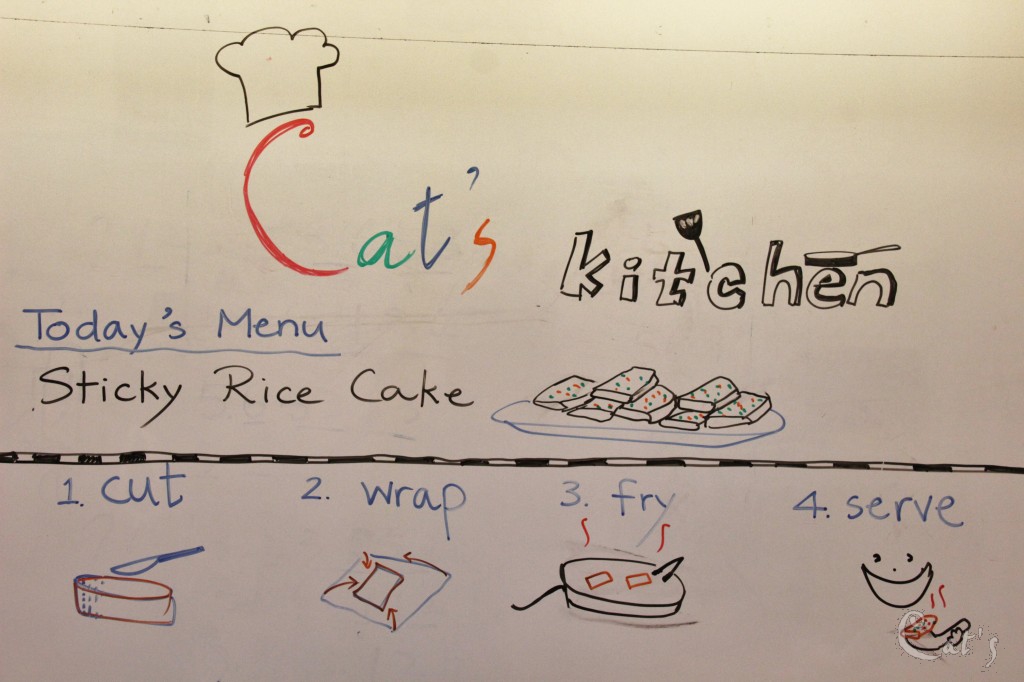 Cat's
kitchen
Today's Menu
Sticky Rice Cake
1. cut
2. wrap
3. fry
4. serve
Cat's